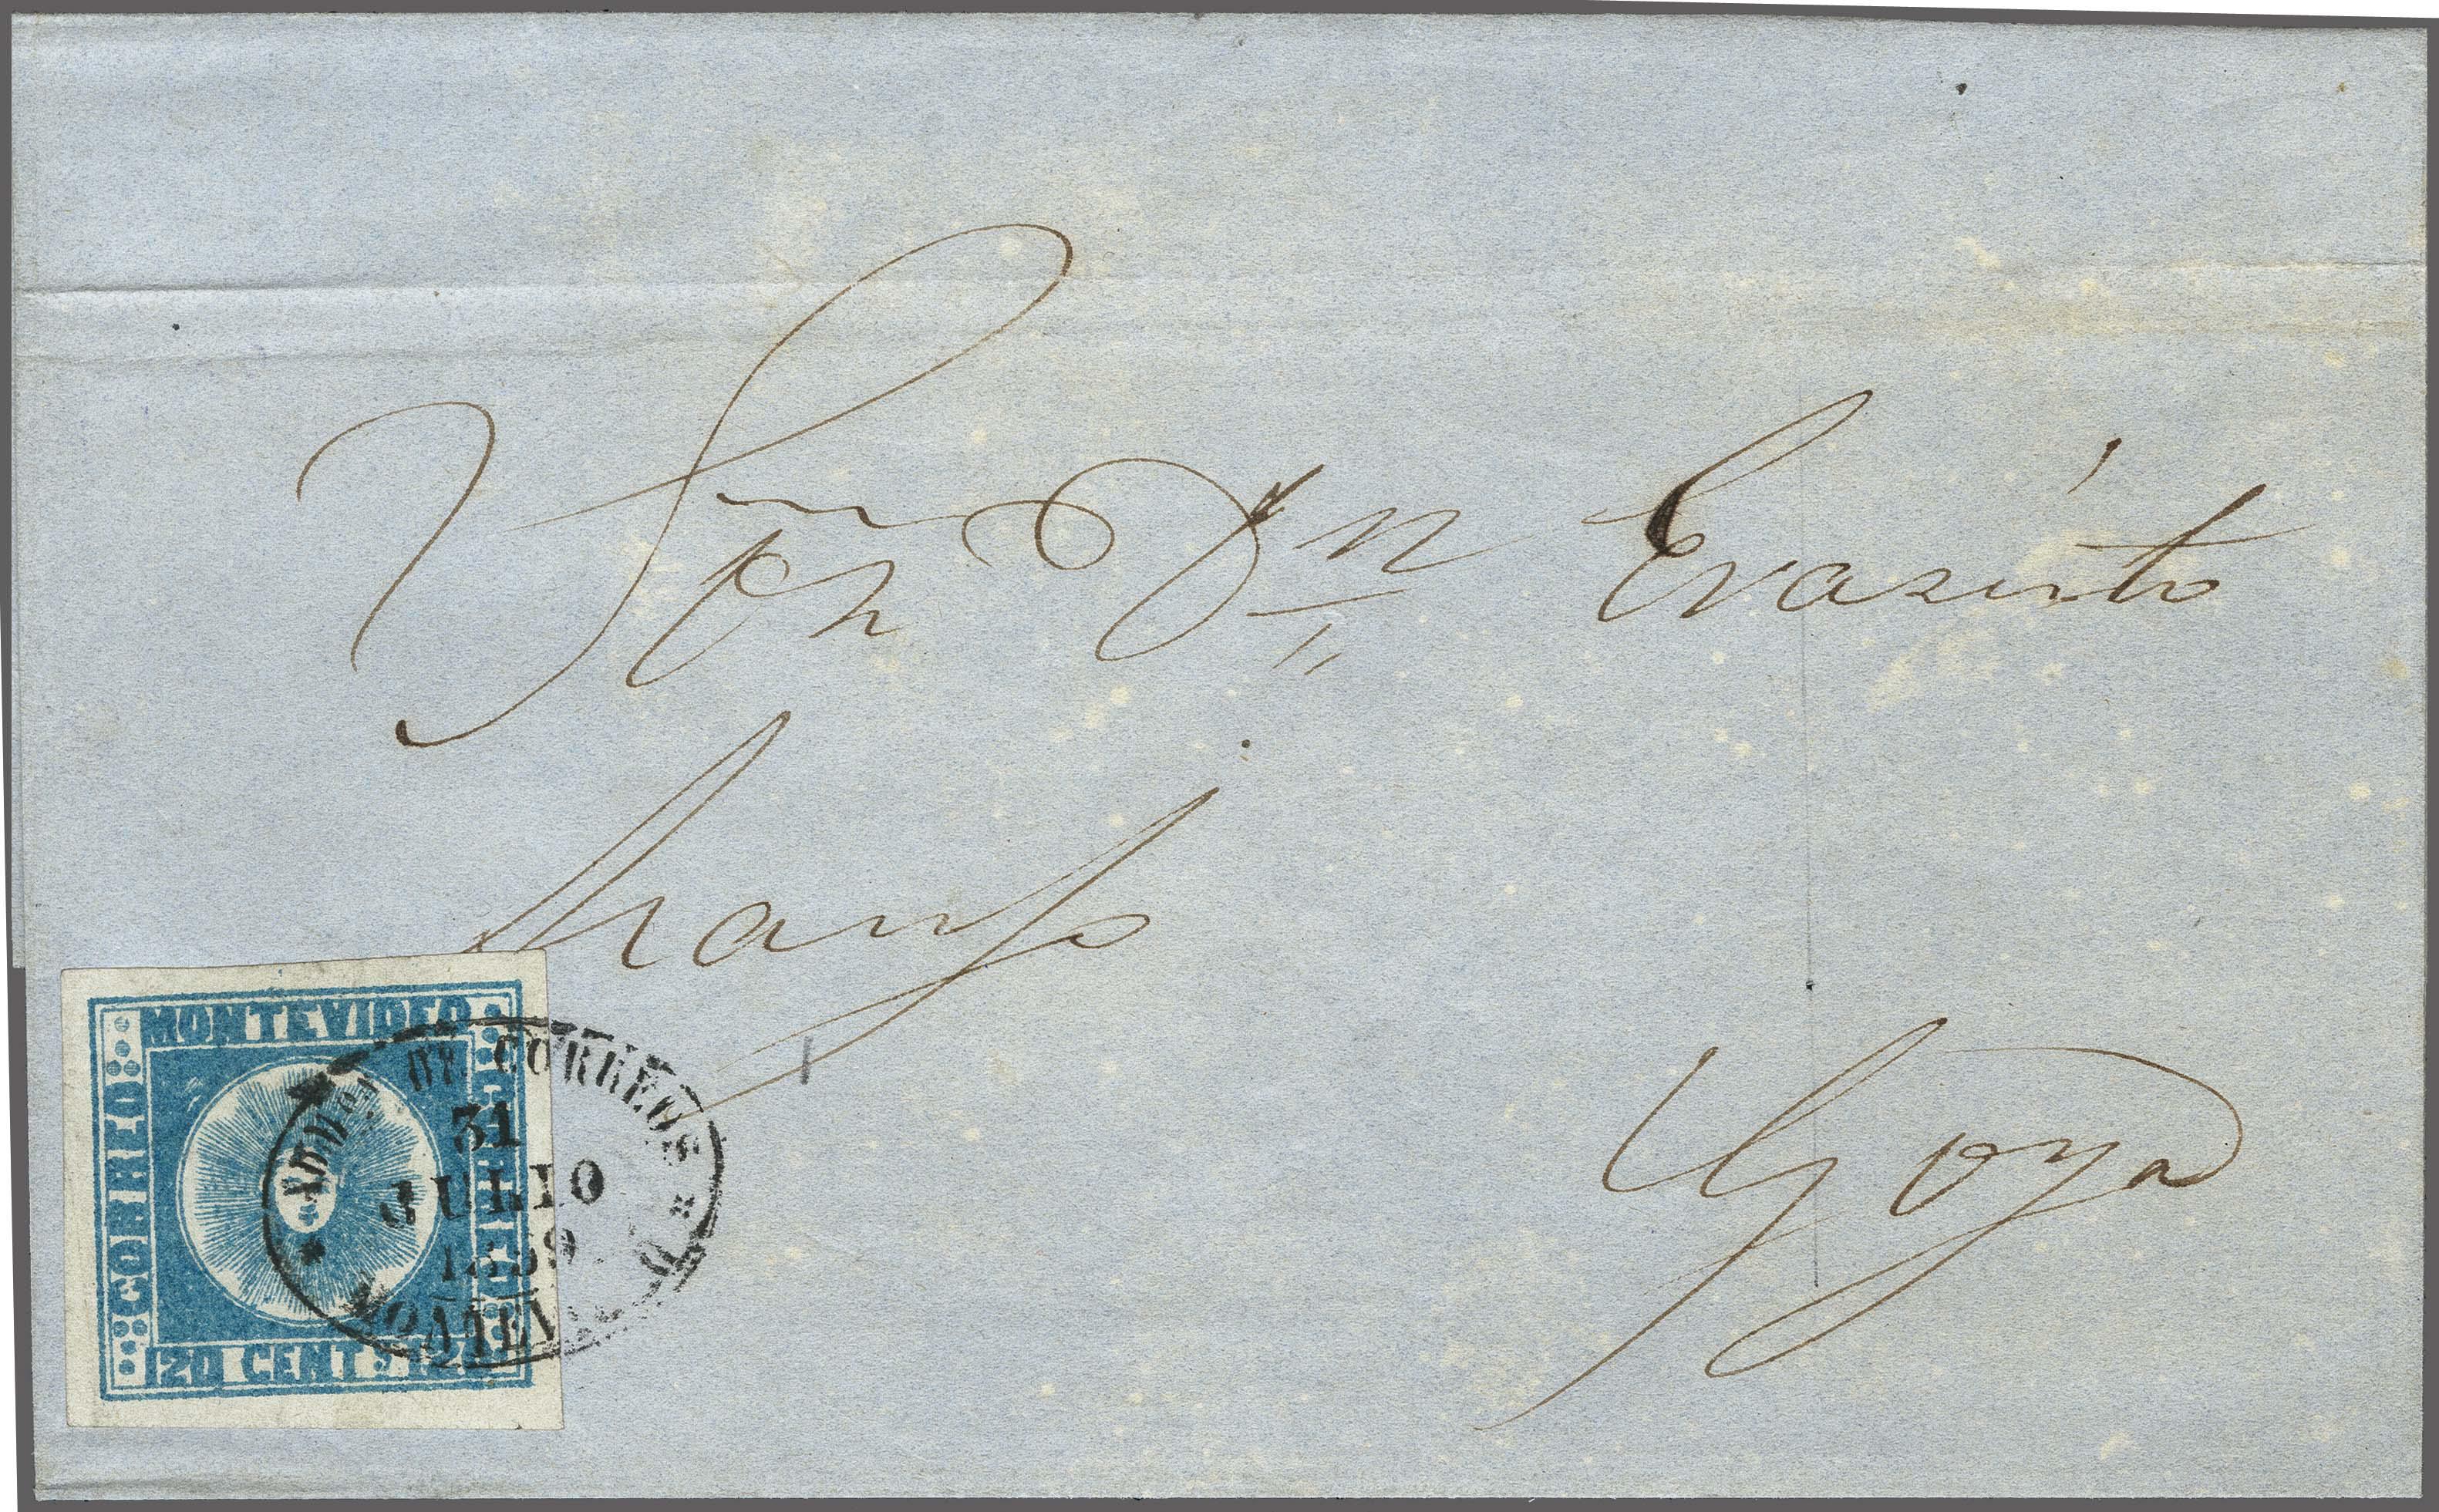 Sor Dn Evaristo
Goya
MONTEVIDEO
CORREO
CORREO
120 CENTS 120
ADMON DE CORREOS
31
JULIO
1859
MONTEVIDEO